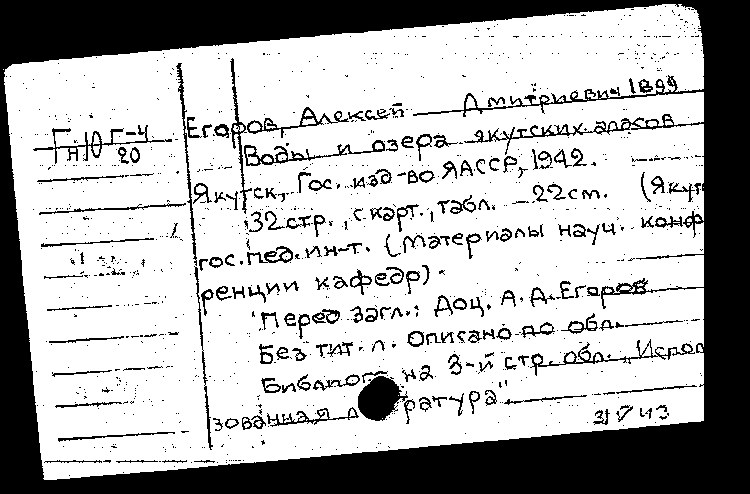 Гн10 Г-4
20
Егоров, Алексей Дмитриевич 1899
Воды и озера якутских аласов
Якутск, Гос. изд-во ЯАССР, 1942.
32 стр., с карт., табл. 22 см. (Якут
гос. пед. ин-т. (Материалы науч. конф
ренции кафедр).
Перед загл.: Доц. А. Д. Егоров
Без тит. л. Описано по обл.
на 3-й стр. обл. "Испол
зованная ратура".
31 V 43